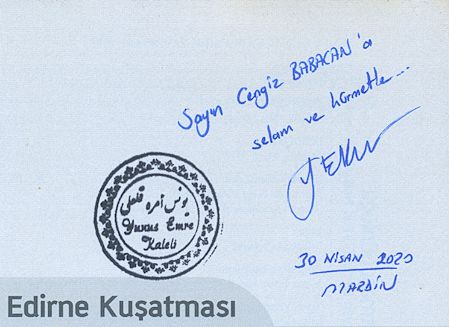 Sayın Cengiz BABACAN'a
selam ve hürmetle...
30 NİSAN 2020
MARDİN
یونس امره قلعلی
Yunus Emre
Kaleli
Edirne Kuşatması